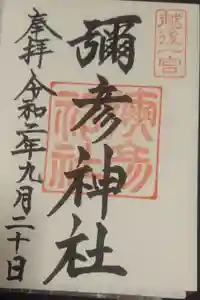 越後一宮
彌彦神社
奉拝 令和二年九月二十日